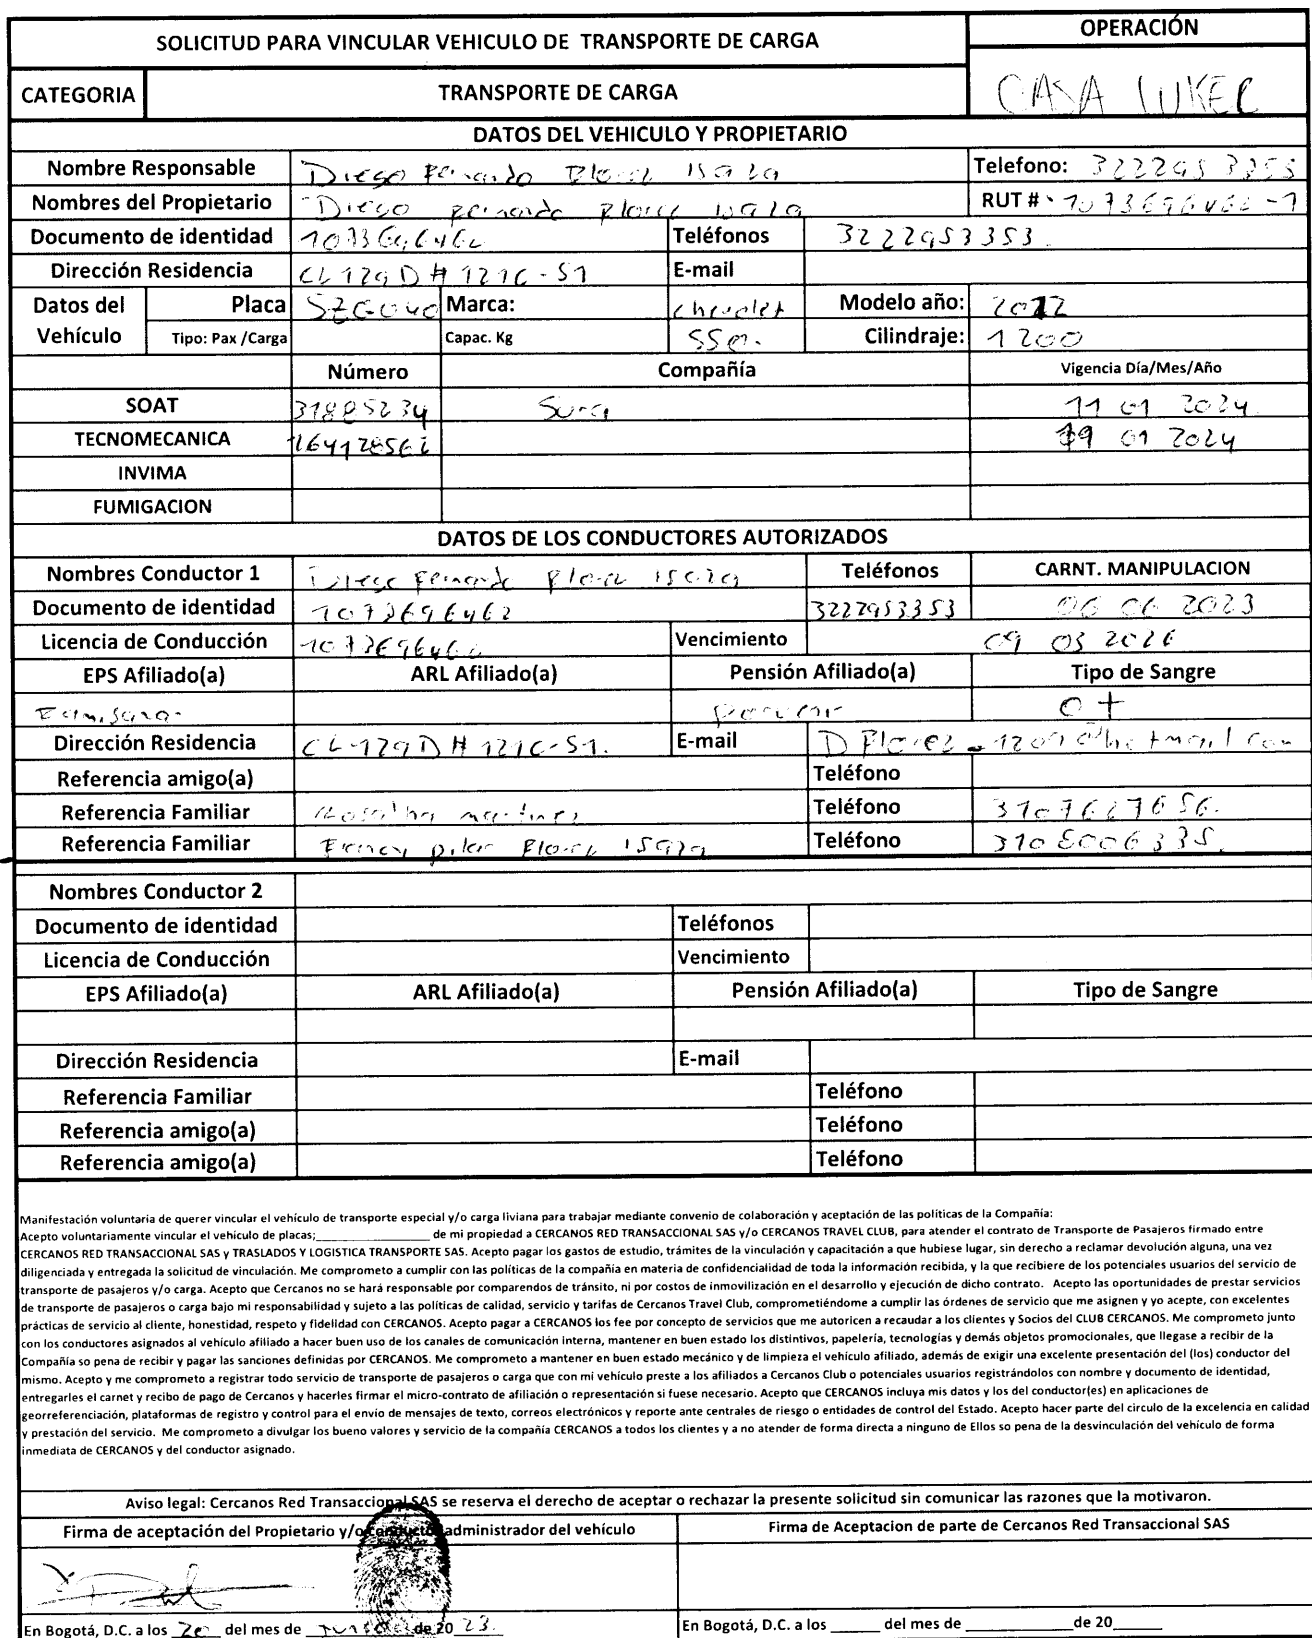 SOLICITUD PARA VINCULAR VEHICULO DE TRANSPORTE DE CARGA
OPERACIÓN
CATEGORIA TRANSPORTE DE CARGA
CASA LUKER
DATOS DEL VEHICULO Y PROPIETARIO
Nombre Responsable Diego Fernando Florez Isaza Telefono: 3222953353
Nombres del Propietario Diego Fernando Florez Isaza RUT # 1073696462-1
Documento de identidad 1073696462 Teléfonos 3222953353.
Dirección Residencia CL 129D # 121C-51 E-mail
Datos del Vehículo Placa SZG040 Marca: chevrolet Modelo año: 2012
Tipo: Pax /Carga Capac. Kg 550. Cilindraje: 1200
Número Compañía Vigencia Día/Mes/Año
SOAT 31805234 Sura 11 01 2024
TECNOMECANICA 164128562 19 01 2024
INVIMA
FUMIGACION
DATOS DE LOS CONDUCTORES AUTORIZADOS
Nombres Conductor 1 Diego Fernando Florez Isaza Teléfonos CARNT. MANIPULACION
Documento de identidad 1073696462 3222953353 06 06 2023
Licencia de Conducción 1073696462 Vencimiento 09 03 2026
EPS Afiliado(a) ARL Afiliado(a) Pensión Afiliado(a) Tipo de Sangre
Famisanar Porvenir O+
Dirección Residencia CL-129D # 121C-51. E-mail DFlorez_1209@hotmail com
Referencia amigo(a) Teléfono
Referencia Familiar martinez Teléfono 3107627656.
Referencia Familiar pilar Florez Isaza Teléfono 3108006335.
Nombres Conductor 2
Documento de identidad Teléfonos
Licencia de Conducción Vencimiento
EPS Afiliado(a) ARL Afiliado(a) Pensión Afiliado(a) Tipo de Sangre
Dirección Residencia E-mail
Referencia Familiar Teléfono
Referencia amigo(a) Teléfono
Referencia amigo(a) Teléfono
Manifestación voluntaria de querer vincular el vehículo de transporte especial y/o carga liviana para trabajar mediante convenio de colaboración y aceptación de las políticas de la Compañía:
Acepto voluntariamente vincular el vehículo de placas;________________ de mi propiedad a CERCANOS RED TRANSACCIONAL SAS y/o CERCANOS TRAVEL CLUB, para atender el contrato de Transporte de Pasajeros firmado entre
CERCANOS RED TRANSACCIONAL SAS y TRASLADOS Y LOGISTICA TRANSPORTE SAS. Acepto pagar los gastos de estudio, trámites de la vinculación y capacitación a que hubiese lugar, sin derecho a reclamar devolución alguna, una vez
diligenciada y entregada la solicitud de vinculación. Me comprometo a cumplir con las políticas de la compañía en materia de confidencialidad de toda la información recibida, y la que recibiere de los potenciales usuarios del servicio de
transporte de pasajeros y/o carga. Acepto que Cercanos no se hará responsable por comparendos de tránsito, ni por costos de inmovilización en el desarrollo y ejecución de dicho contrato. Acepto las oportunidades de prestar servicios
de transporte de pasajeros o carga bajo mi responsabilidad y sujeto a las políticas de calidad, servicio y tarifas de Cercanos Travel Club, comprometiéndome a cumplir las órdenes de servicio que me asignen y yo acepte, con excelentes
prácticas de servicio al cliente, honestidad, respeto y fidelidad con CERCANOS. Acepto pagar a CERCANOS los fee por concepto de servicios que me autoricen a recaudar a los clientes y Socios del CLUB CERCANOS. Me comprometo junto
con los conductores asignados al vehículo afiliado a hacer buen uso de los canales de comunicación interna, mantener en buen estado los distintivos, papelería, tecnologías y demás objetos promocionales, que llegase a recibir de la
Compañía so pena de recibir y pagar las sanciones definidas por CERCANOS. Me comprometo a mantener en buen estado mecánico y de limpieza el vehículo afiliado, además de exigir una excelente presentación del (los) conductor del
mismo. Acepto y me comprometo a registrar todo servicio de transporte de pasajeros o carga que con mi vehículo preste a los afiliados a Cercanos Club o potenciales usuarios registrándolos con nombre y documento de identidad,
entregarles el carnet y recibo de pago de Cercanos y hacerles firmar el micro-contrato de afiliación o representación si fuese necesario. Acepto que CERCANOS incluya mis datos y los del conductor(es) en aplicaciones de
georreferenciación, plataformas de registro y control para el envío de mensajes de texto, correos electrónicos y reporte ante centrales de riesgo o entidades de control del Estado. Acepto hacer parte del circulo de la excelencia en calidad
y prestación del servicio. Me comprometo a divulgar los bueno valores y servicio de la compañía CERCANOS a todos los clientes y a no atender de forma directa a ninguno de Ellos so pena de la desvinculación del vehículo de forma
inmediata de CERCANOS y del conductor asignado.
Aviso legal: Cercanos Red Transaccional SAS se reserva el derecho de aceptar o rechazar la presente solicitud sin comunicar las razones que la motivaron.
Firma de aceptación del Propietario y/o Conductor administrador del vehículo Firma de Aceptacion de parte de Cercanos Red Transaccional SAS
En Bogotá, D.C. a los 20 del mes de de 20 23. En Bogotá, D.C. a los _____ del mes de ___________ de 20_____